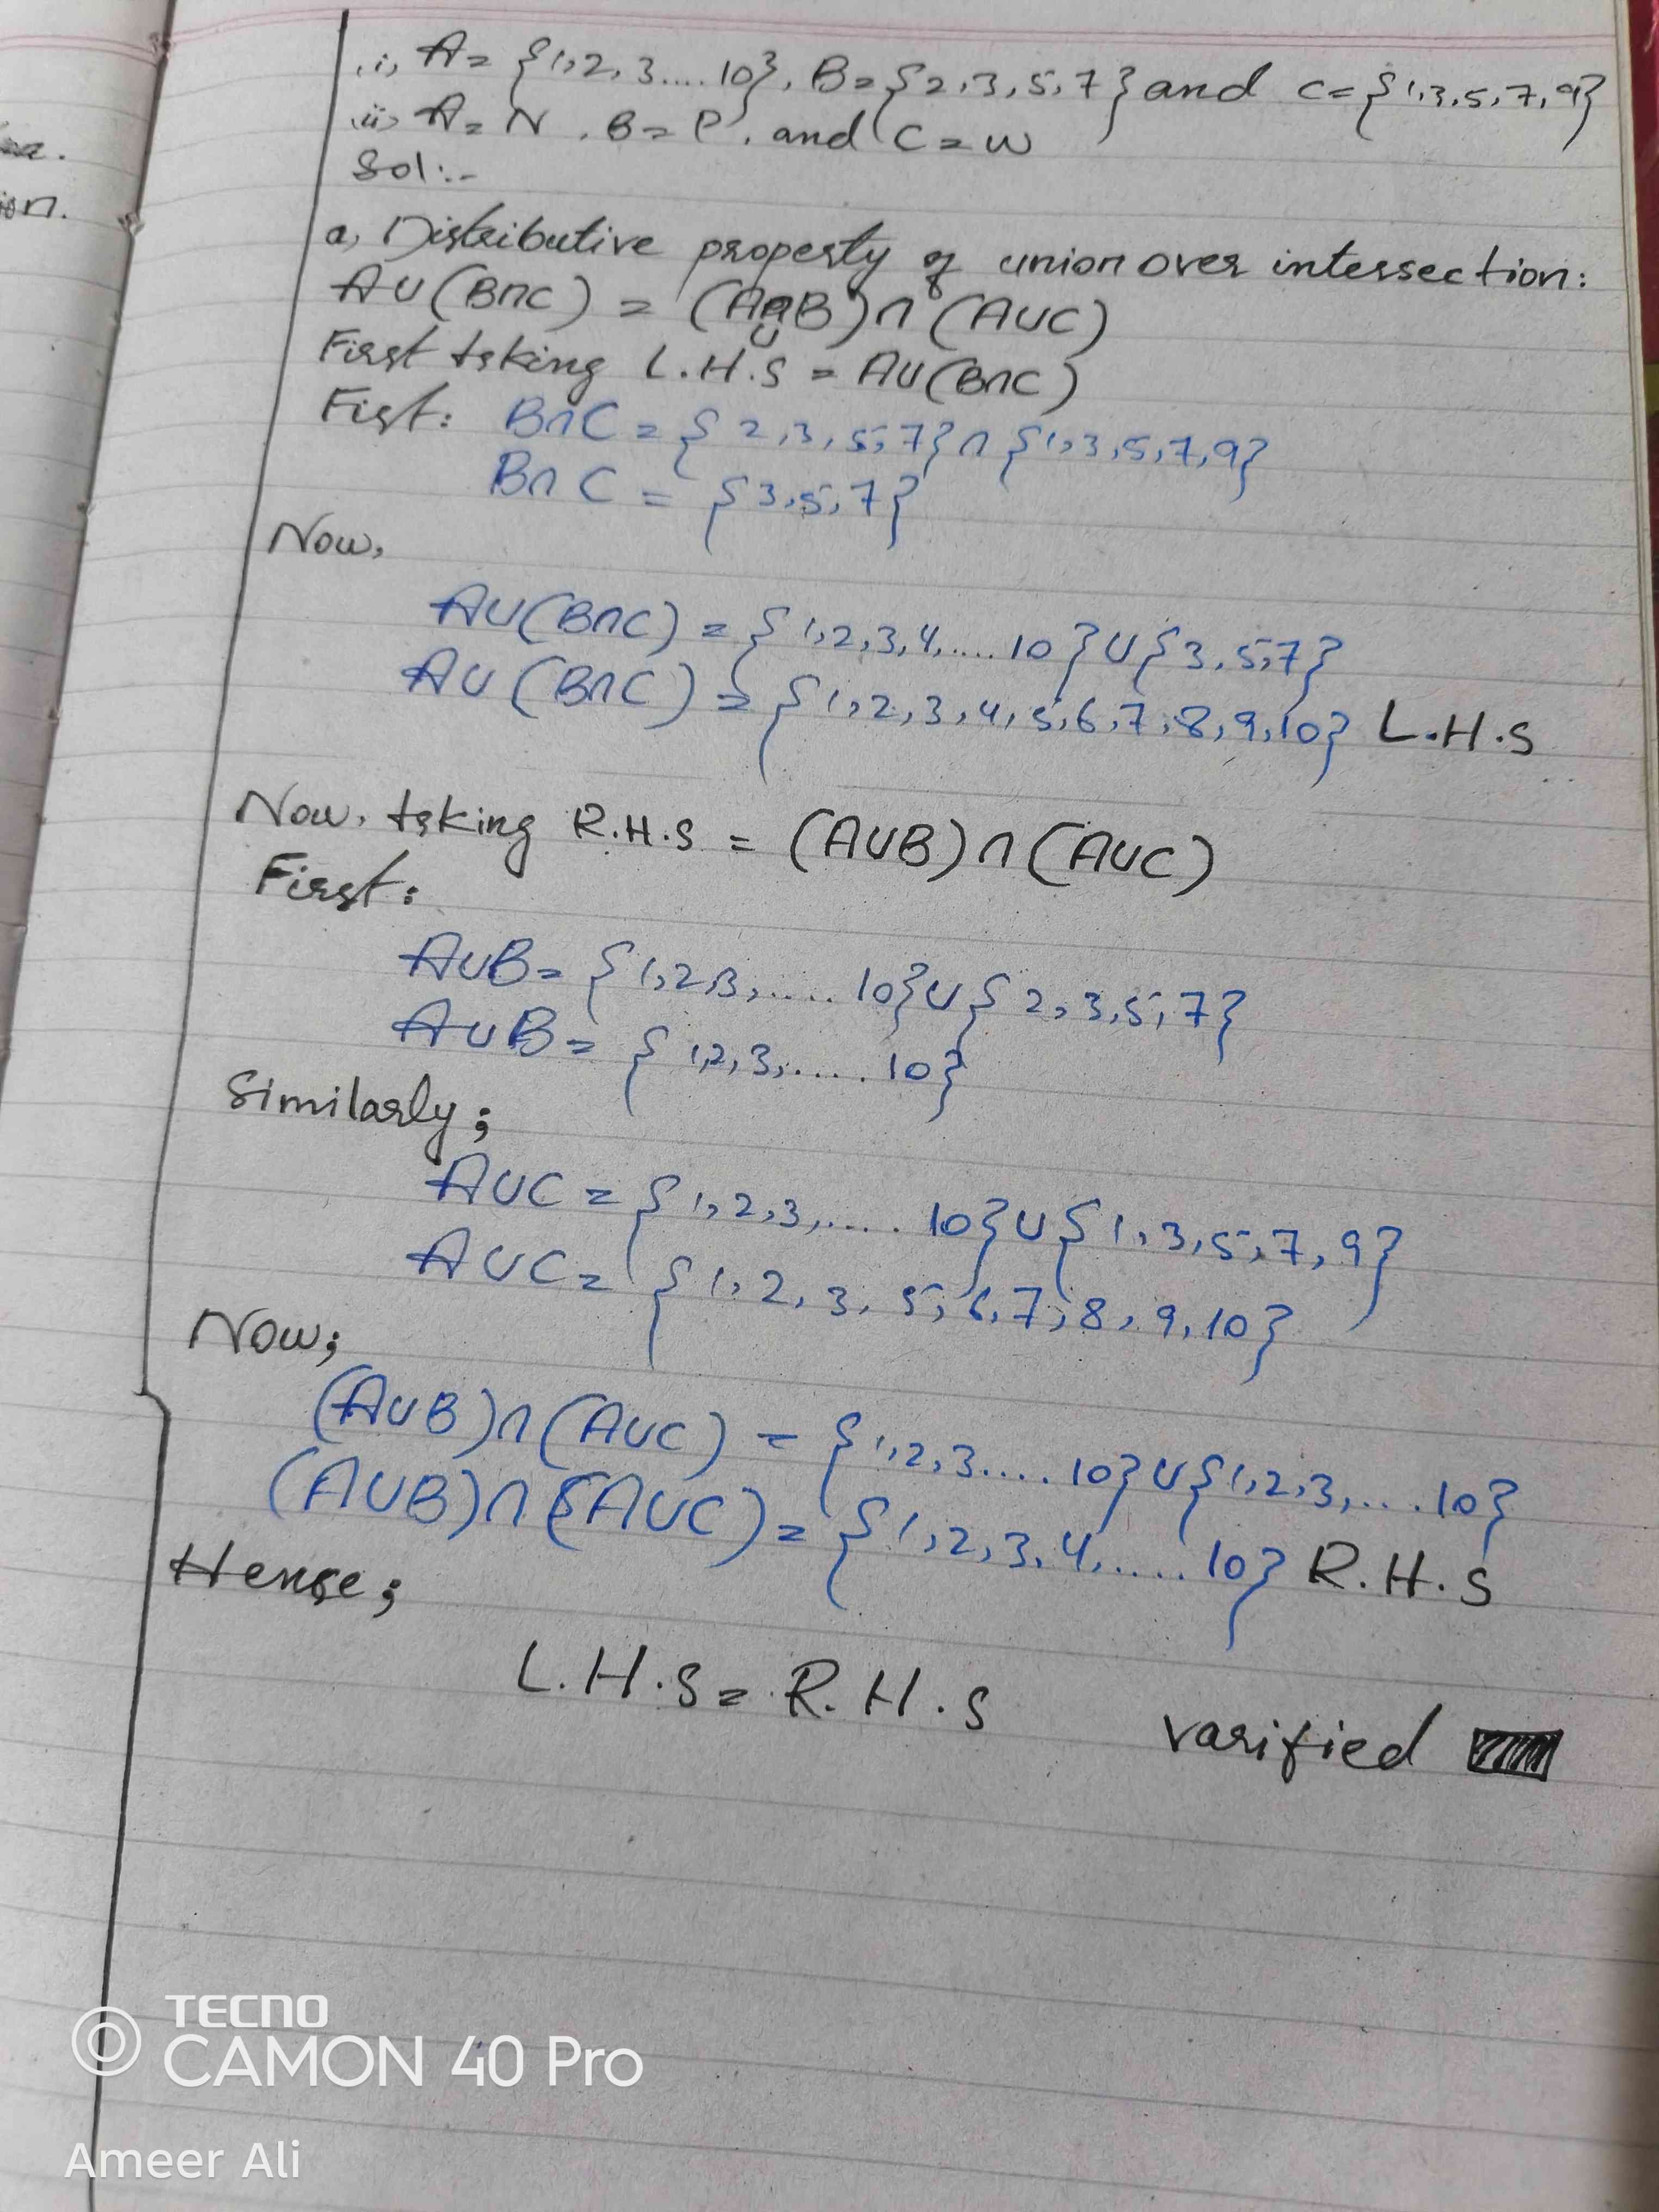 i, A = {1,2,3....10}, B = {2,3,5,7} and C = {1,3,5,7,9}
ii, A = N, B = P, and C = W
on.
Sol:-
a, Distributive property of union over intersection:
A∪(B∩C) = (A∪B)∩(A∪C)
First taking L.H.S = A∪(B∩C)
Fist: B∩C = {2,3,5,7}∩{1,3,5,7,9}
B∩C = {3,5,7}
Now,
A∪(B∩C) = {1,2,3,4,....10}∪{3,5,7}
A∪(B∩C) = {1,2,3,4,5,6,7,8,9,10} L.H.S
Now, taking R.H.S = (A∪B)∩(A∪C)
First:
A∪B = {1,2,3,.....10}∪{2,3,5,7}
A∪B = {1,2,3,.....10}
Similarly;
A∪C = {1,2,3,....10}∪{1,3,5,7,9}
A∪C = {1,2,3,5,6,7,8,9,10}
Now;
(A∪B)∩(A∪C) = {1,2,3....10}∪{1,2,3,....10}
(A∪B)∩(A∪C) = {1,2,3,4,.....10} R.H.S
Hence;
L.H.S = R.H.S varified
TECNO
CAMON 40 Pro
Ameer Ali